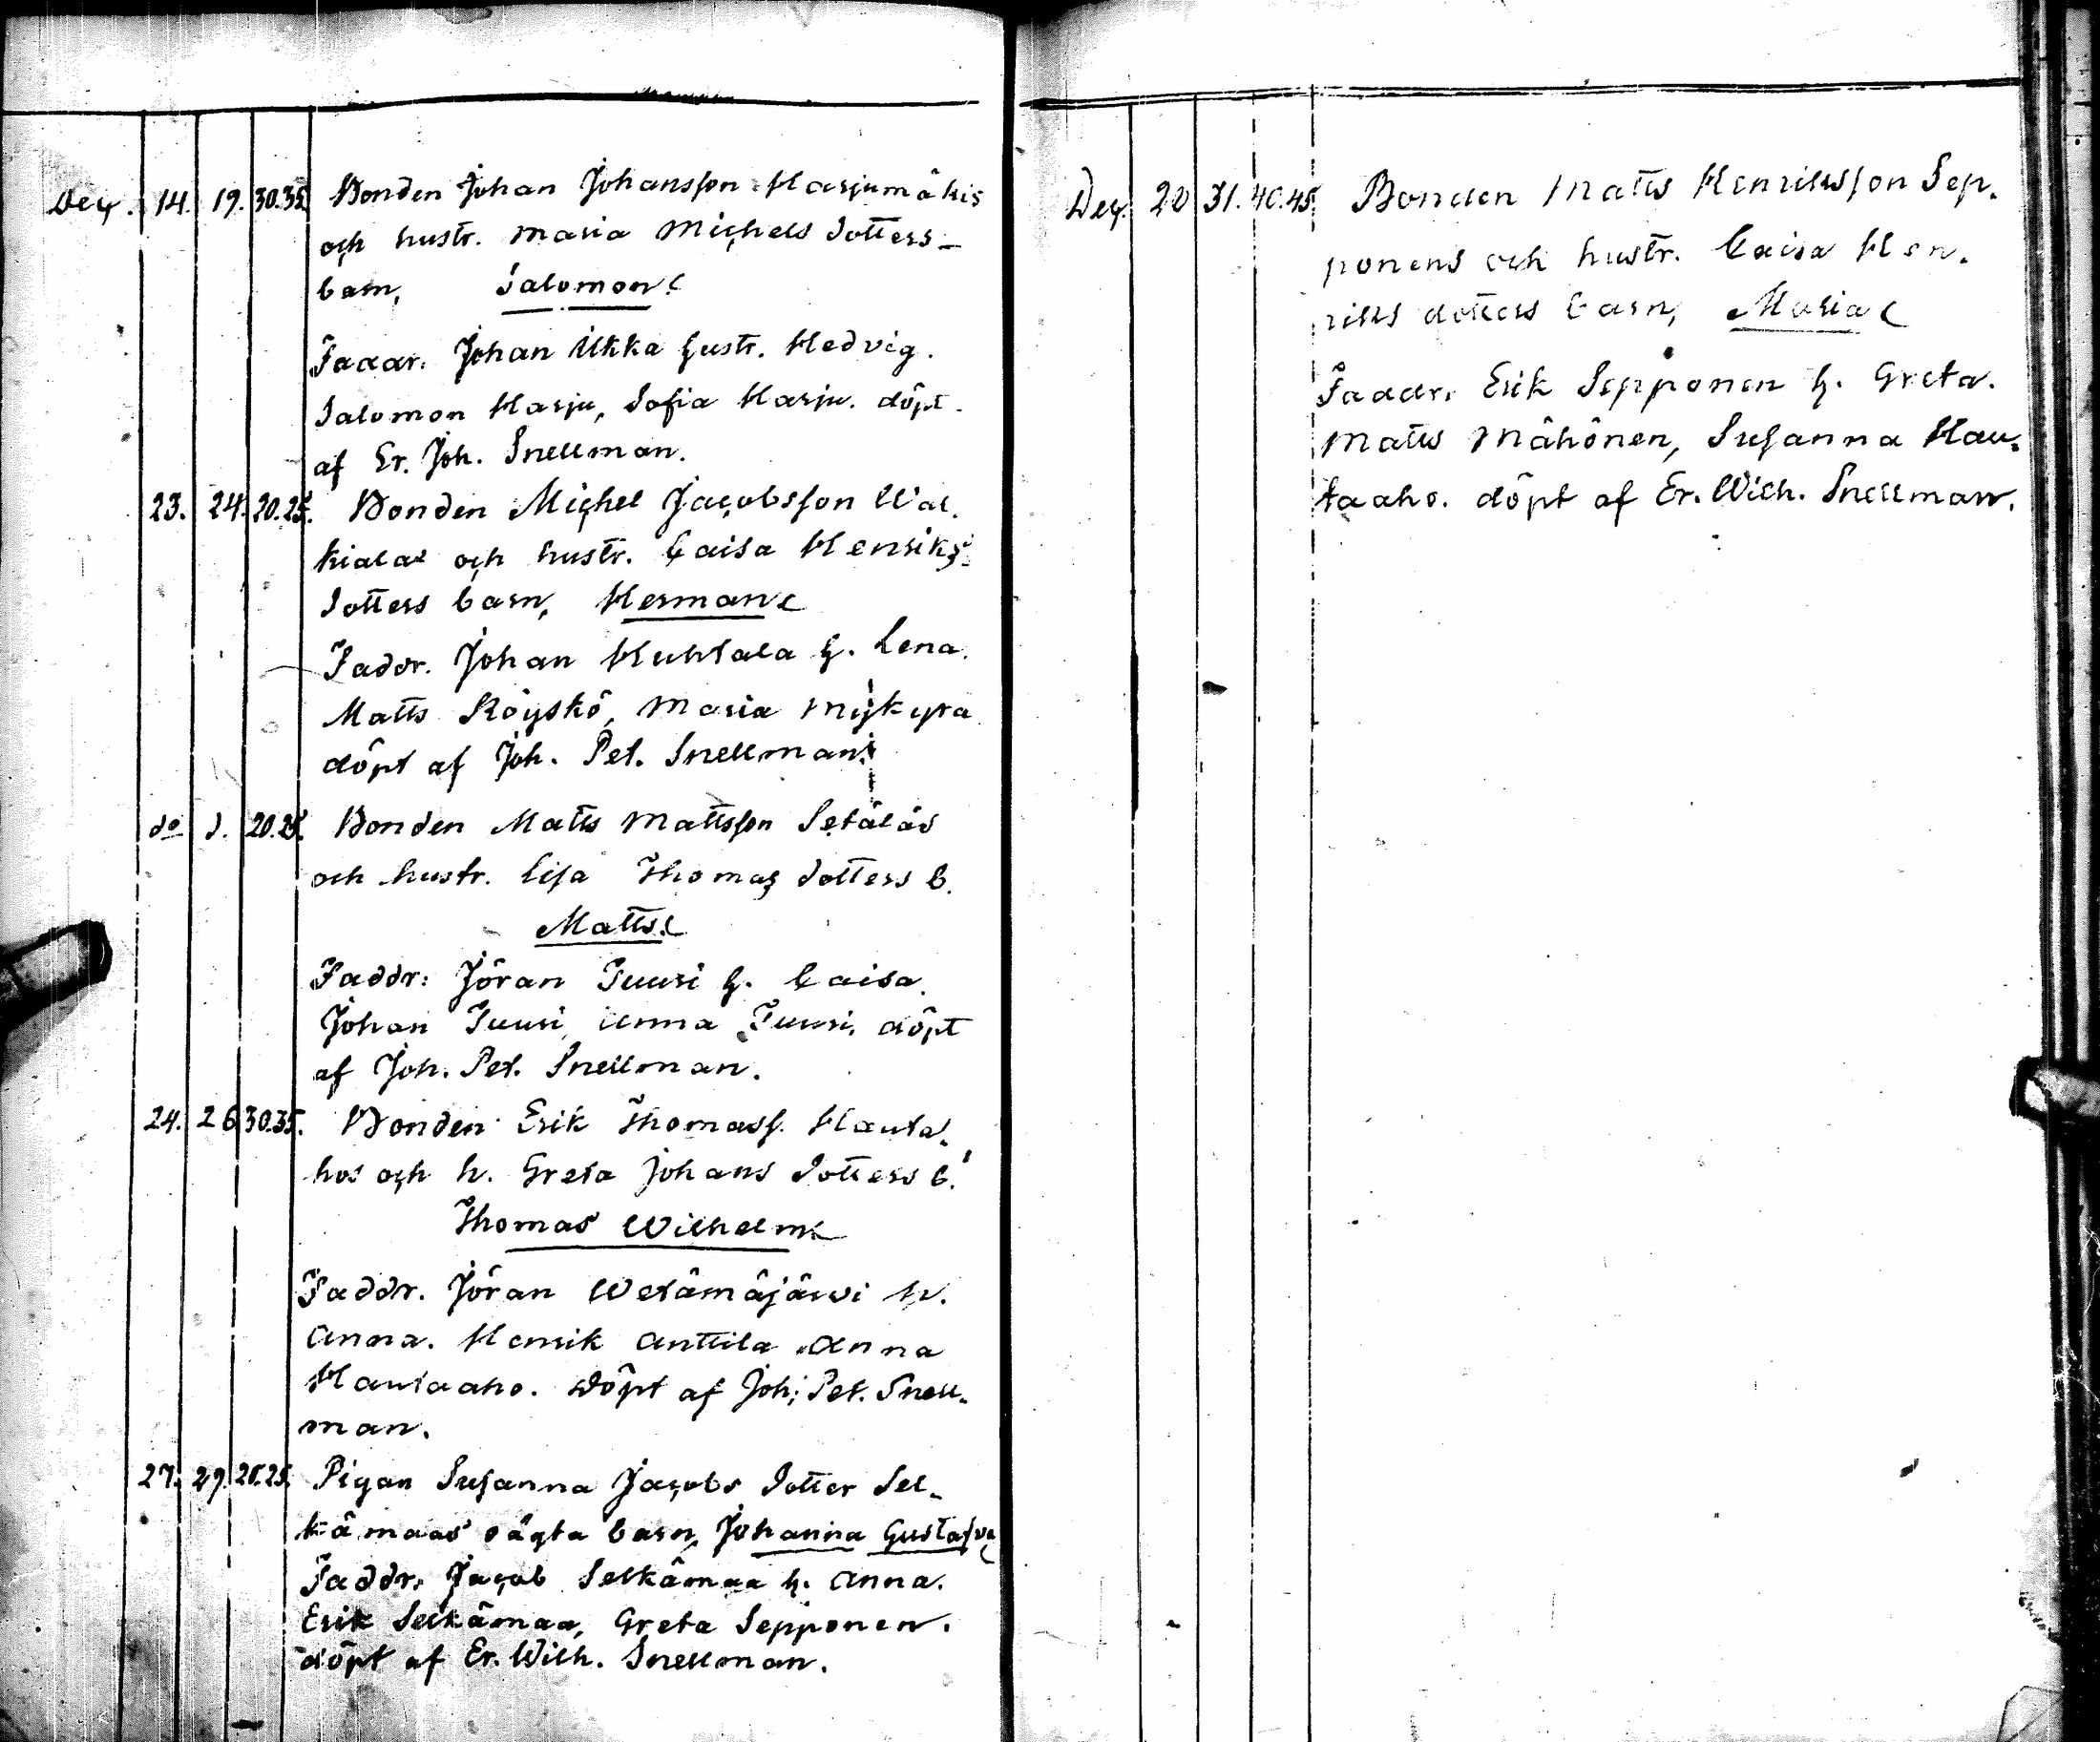 Dec. 14. 19. 30.35. Bonden Johan Johansson Harjumäkis
och hustr. Maria Michels dotters
barn, Salomon
Faddr. Johan Ukka hustr. Hedvig.
Salomon Harju, Sofia Harju. döpt
af Er. Joh. Snellman.
23. 24. 20.25. Bonden Michel Jacobsson Wal-
kialas och hustr. Caisa Henriks
dotters barn, Herman
Faddr. Johan Huhtala h. Lena.
Matts Röyskö, Maria Mykyra
döpt af Joh. Pet. Snellman.
do d. 20.25. Bonden Matts Mattsson Setäläs
och hustr. Lisa Thomas dotters b.
Matts.
Faddr: Jöran Tuuri h. Caisa.
Johan Tuuri, Anna Tuuri, döpt
af Joh. Pet. Snellman.
24. 26 30.35. Bonden Erik Thomass. Hauta-
hos och h. Greta Johans dotters b.
Thomas Wilhelm
Faddr. Jöran Wetämäjärvi h.
Anna. Henrik Anttila Anna
Hautaaho. döpt af Joh. Pet. Snell-
man.
27. 29. 20.25. Pigan Susanna Jacobs dotter Sel-
kämaas oägta barn, Johanna Gustafva
Faddr. Jacob Selkämaa h. Anna.
Erik Selkämaa, Greta Sepponen.
döpt af Er. Wilh. Snellman.
Dec. 20 31. 40.45. Bonden Matts Henriksson Sep-
ponens och hustr. Caisa Hen-
riks dotters barn, Maria
Faddr. Erik Sepponen h. Greta.
Matts Mähönen, Susanna Hau-
taaho. döpt af Er. Wilh. Snellman.